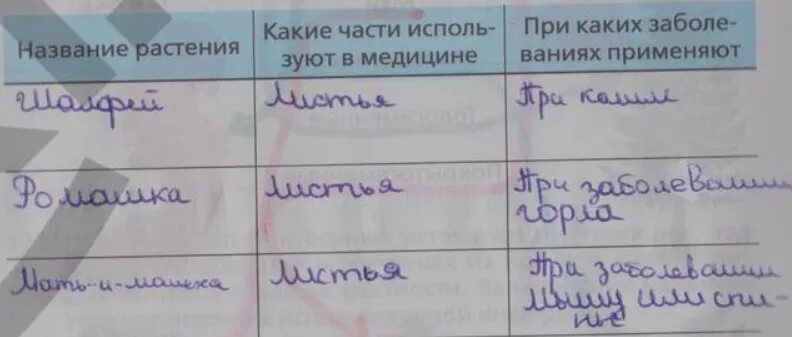 Название растения
Какие части исполь-
зуют в медицине
При каких заболе-
ваниях применяют
Шалфей
Листья
При кашле
Ромашка
Листья
При заболевании
горла
Мать-и-мачеха
Листья
При заболевании
мышц или спи-
не